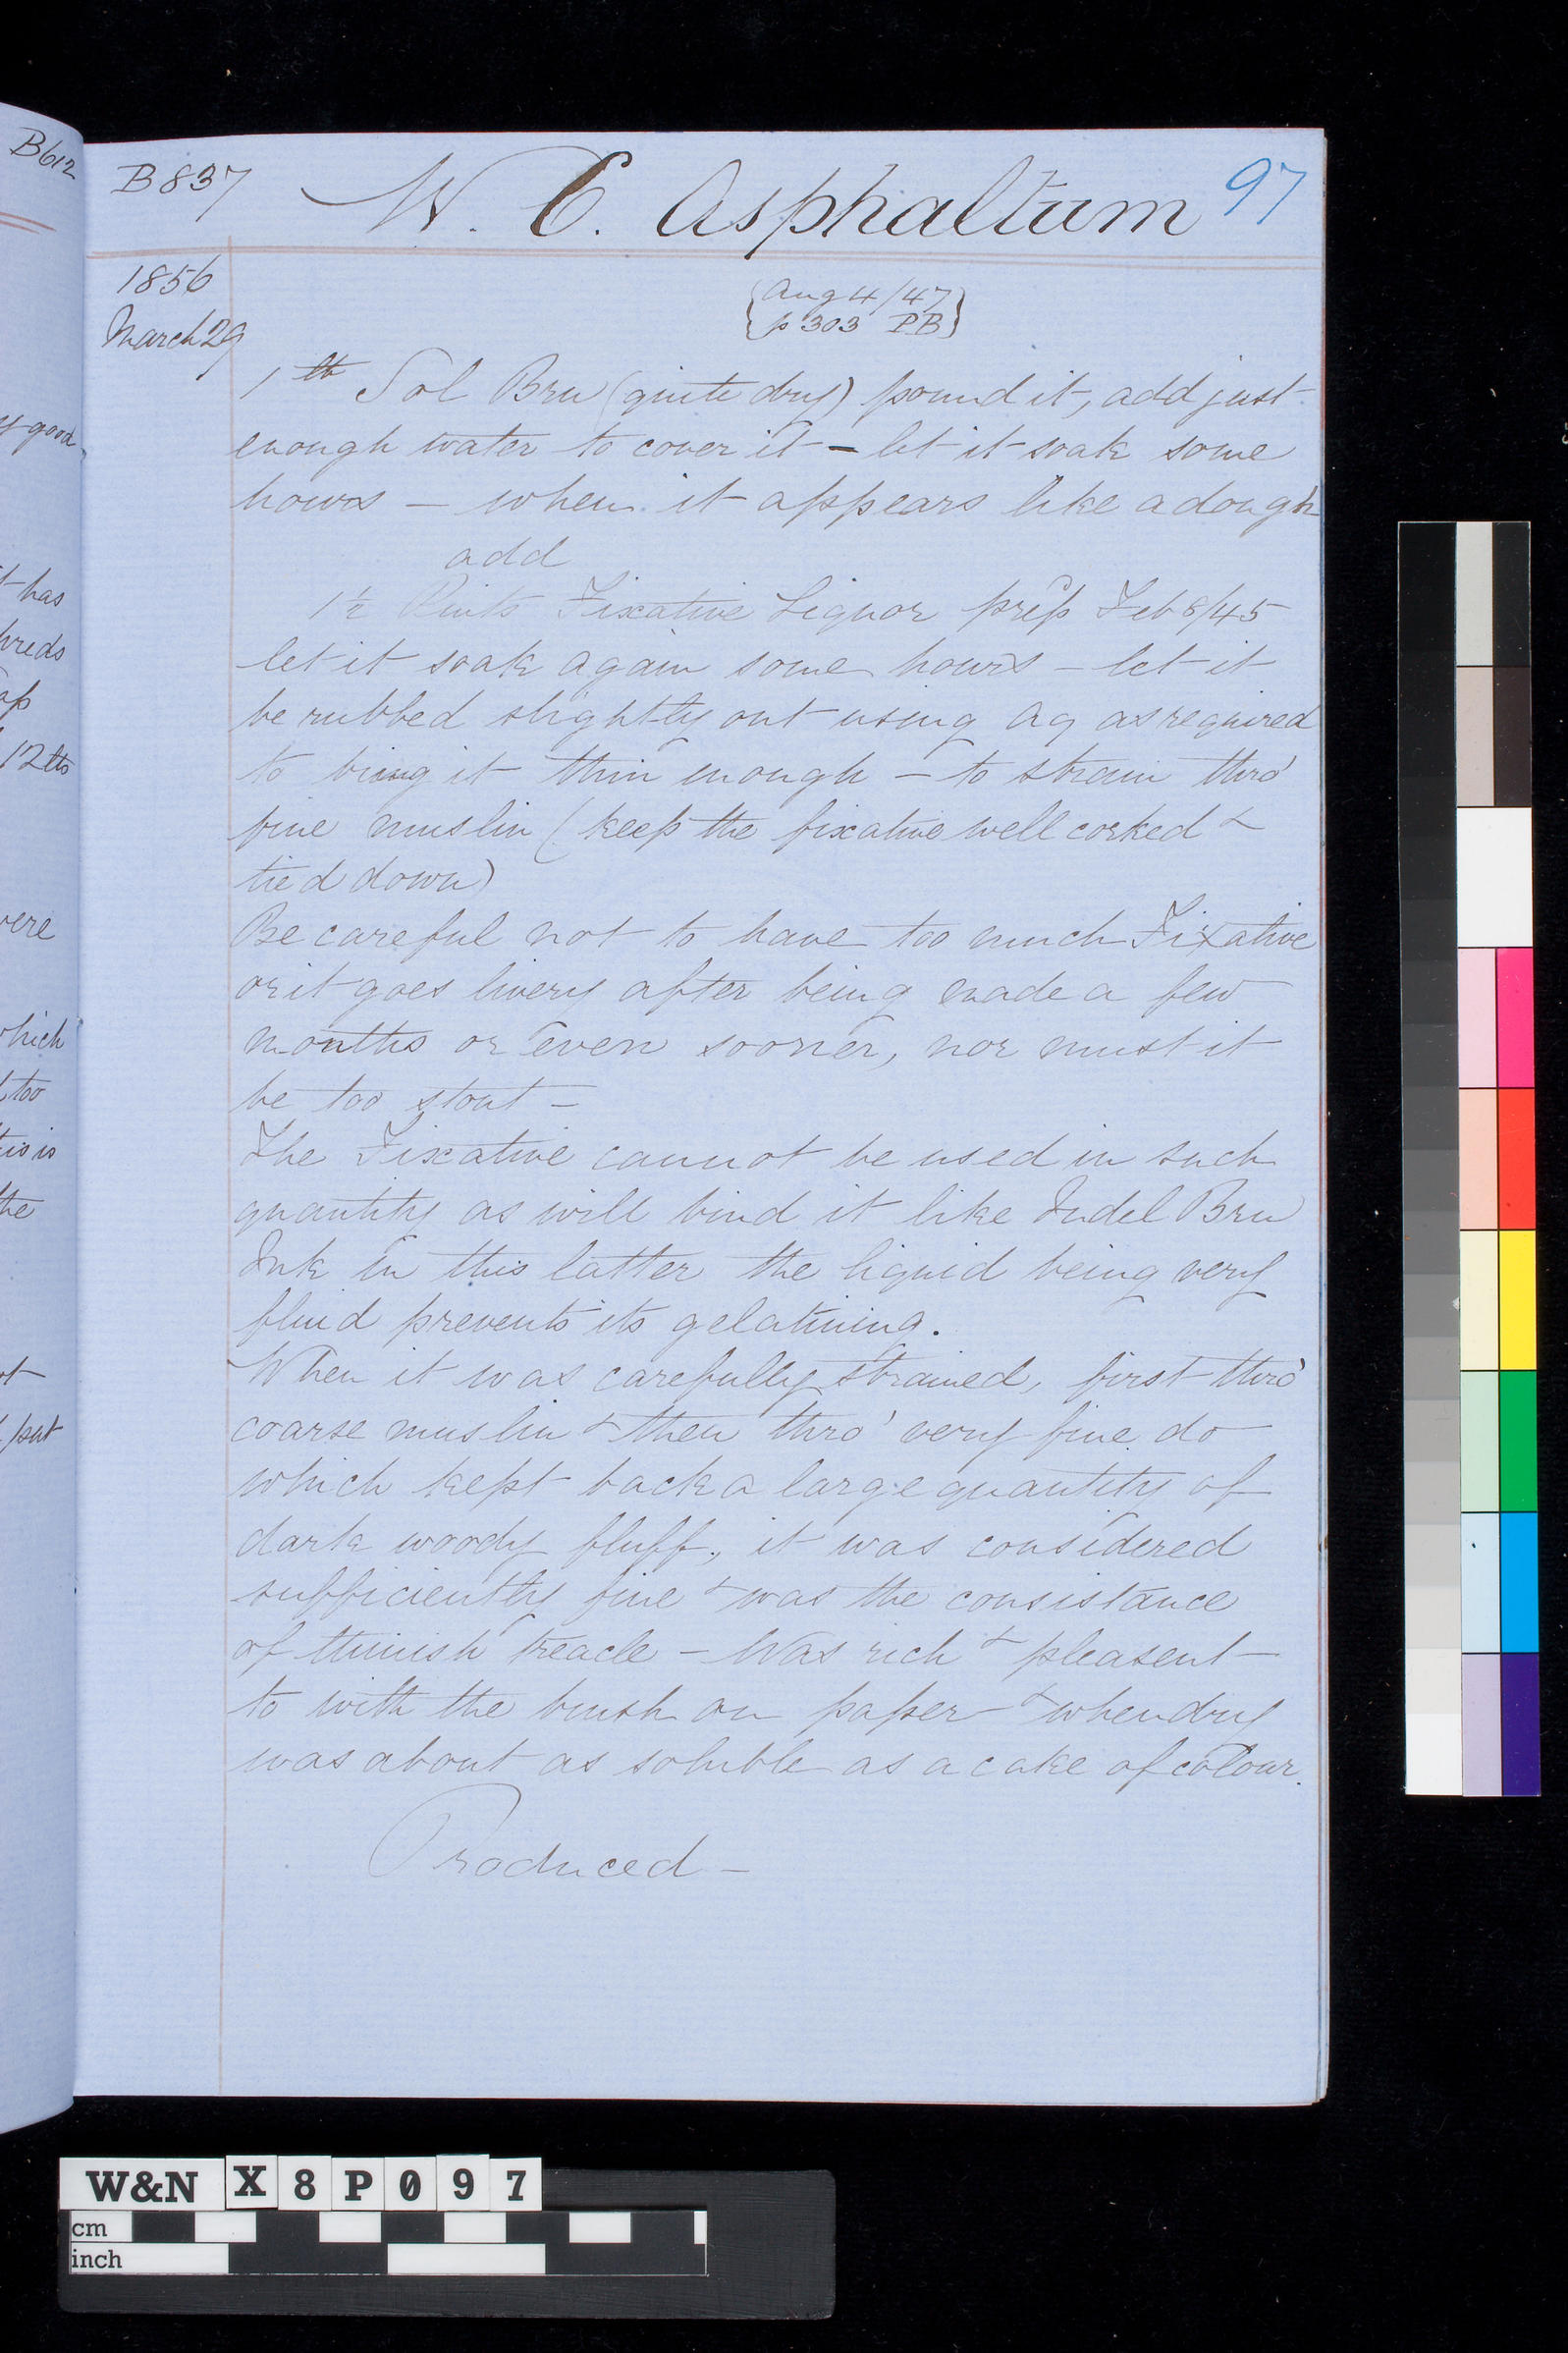 B612
B837
W. C. Asphaltum
97
1856
March 29
{Aug 4/47}
{p 303 PB}
1 lb Sol Brn (quite dry) pound it, add just
enough water to cover it – let it soak some
hours – when it appears like a dough
add
1½ Pints Fixative Liquor prep Feb 8/45
let it soak again some hours – let it
be rubbed slightly out using Aq as required
to bring it thin enough – to strain thro'
fine muslin (keep the fixative well corked &
tied down)
Be careful not to have too much Fixative
or it goes livery after being made a few
months or even sooner, nor must it
be too stout –
The Fixative cannot be used in such
quantity as will bind it like Indel Brn
Ink in this latter the liquid being very
fluid prevents its gelatining.
When it was carefully strained, first thro'
coarse muslin & then thro' very fine do
which kept back a large quantity of
dark woody fluff, it was considered
sufficiently fine & was the consistance
of thinish treacle – Was rich & pleasent
to with the brush on paper & when dry
was about as soluble as a cake of colour.
Produced –
y good
t has
hreds
12 lbs
were
which
too
this is
the
put
W&N X8P097
cm
inch